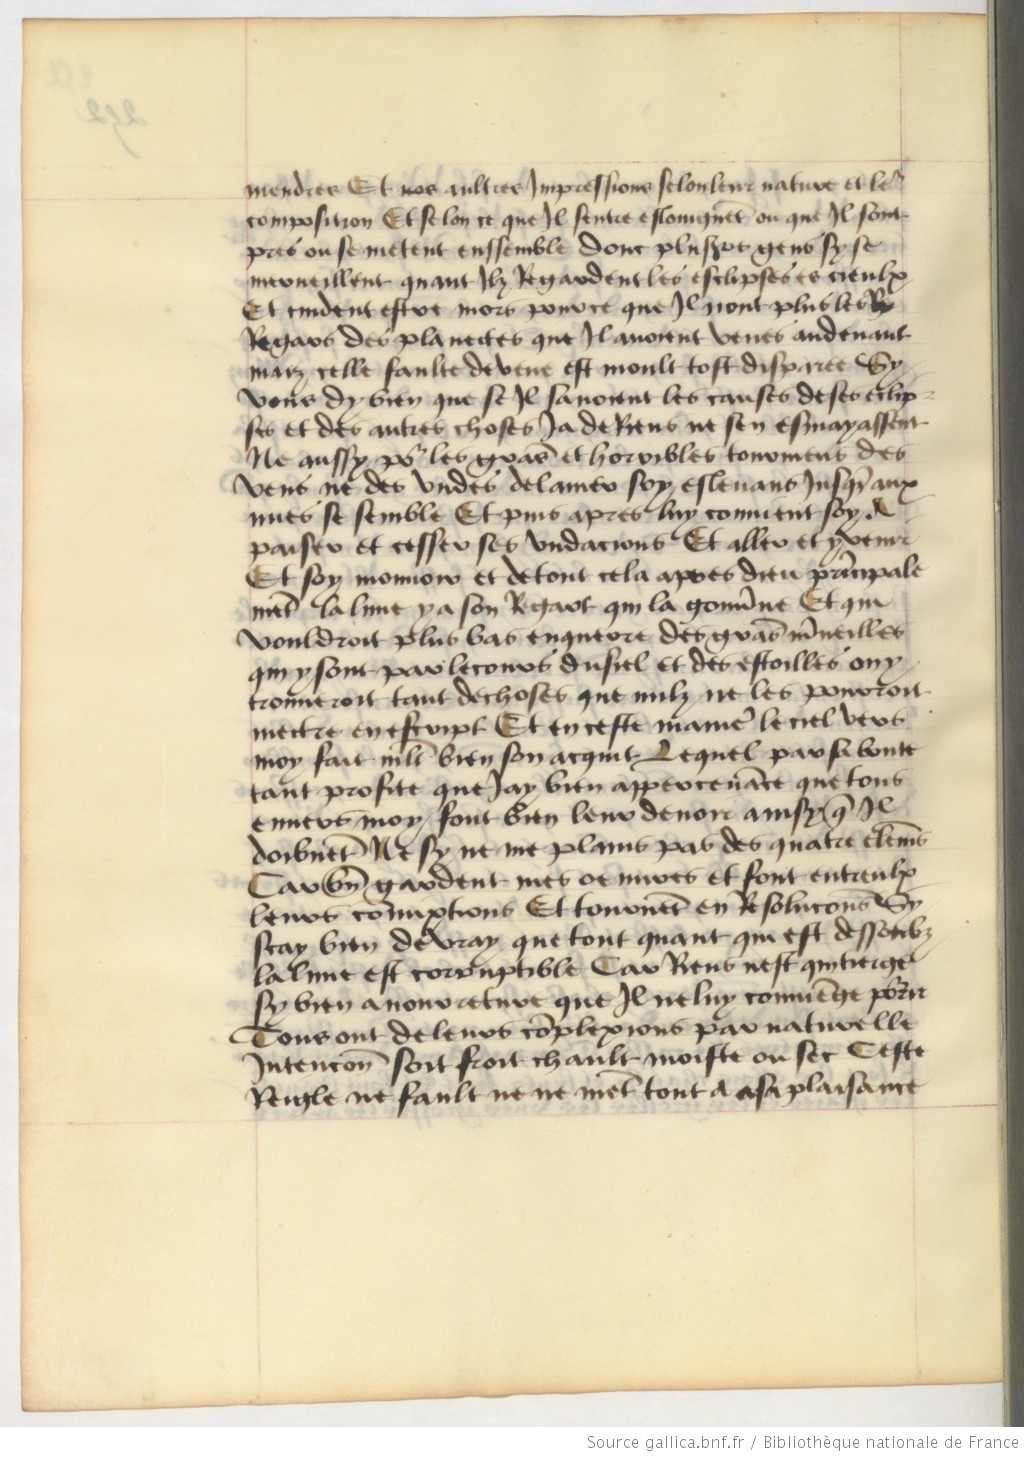 mendres Et nos aultres Impressions selon leur nature et le'
composition Et selon ce que Il sentre esloingnēt ou que Il sont
pres ou se metent enssemble Donc plus͛ gens sy se
merueillent quant Ilz Regardent les esclipses es cieulx
Et cuident estre mors pource que Il nont plus les
Regars des planectes que Il auoient veues au deuant
maiz celle faulte de veue est moult tost disparee Sy
vous dy bien que se Il sauoient les causes de ses eclip-
ses et des autres choses Ja de Riens ne sen esmayassent
Ne aussy po' les grās et horribles tourmens des
vens ne des vndes de la mer soy esleuans Jusqs aux
nues se semble Et puis apres luy conuient soy A
paiser et cesser ses vndacions Et aller et y venir
Et soy mouuoir et de tout cela apres dieu pncipale
mēt la lune y a son Regart qui la gouūne Et qui
vouldroit plus bas enquerre des grās mueilles
qui y sont par le cours du siel et des estoilles on y
trouueroit tant de choses que nulz ne les pouroit
mectre en escript Et en ceste manie' le ciel vers
moy fait mlt bien son acquit Lequel par sa bonte
tant profite que Jay bien apperceuāce que tous
enuers moy font bien leur deuoir ainsy q̄ Il
doibuēt Ne sy ne me plains pas des quatre elemēs
Car bn̄ gardent mes oeuures et font entreulx
leurs corrupcions Et tournēt en Resolucons Sy
scay bien de vray que tout quant qui est dessoubz
la lune est corruptible Car Riens nest qui tiergē
sy bien a nourreture que Il ne luy conuiēge po'rir
Tous ont de leurs cōplexions par naturelle
Intencon soit froit chault moiste ou sec Ceste
Reigle ne fault ne ne mēt tout a a sa plaisance
Source gallica.bnf.fr / Bibliothèque nationale de France